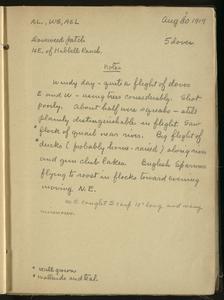 AL, WB, AEL
Aug 30 1919
Dove weed patch
5 doves
NE. of Hubbell Ranch.
Notes
Windy day - quite a flight of doves
E and W - using trees considerably. Shot
poorly. About half were squabs - still
plainly distinguishable in flight. Saw
flock of quail near river. Big flight of
ducks (probably home-raised) along river
and gun club lakes. English Sparrows
flying to roost in flocks toward evening
moving N.E.
caught 3 carp 15" long and many
minnows.
* well grown
* mallards and teal